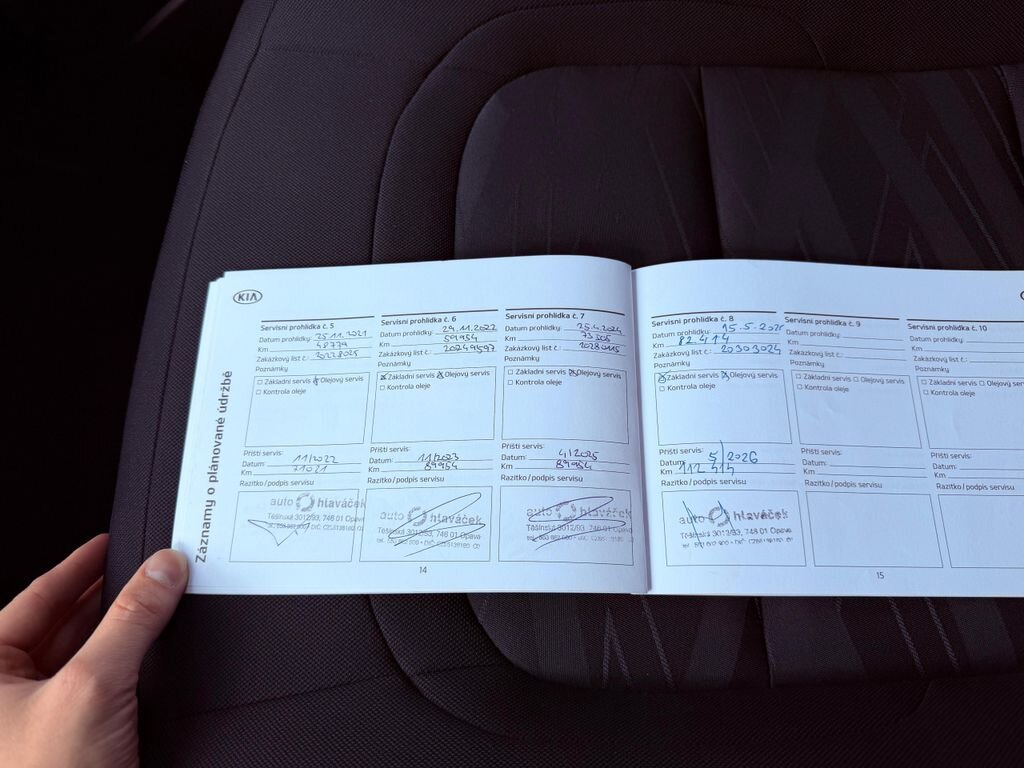 KIA
Záznamy o plánované údržbě
Servisní prohlídka č. 5
Datum prohlídky: 25.11.2021
Km 48779
Zakázkový list č.: 20228025
Poznámky
☐ Základní servis ☒ Olejový servis
☐ Kontrola oleje
Příští servis:
Datum: 11/2022
Km 71021
Razítko/podpis servisu
auto hlaváček
Těšínská 3012/93, 746 01 Opava
Servisní prohlídka č. 6
Datum prohlídky: 24.11.2022
Km 59954
Zakázkový list č.: 20249597
Poznámky
☒ Základní servis ☒ Olejový servis
☐ Kontrola oleje
Příští servis:
Datum: 11/2023
Km 89954
Razítko/podpis servisu
auto hlaváček
Těšínská 3012/93, 746 01 Opava
Servisní prohlídka č. 7
Datum prohlídky: 25.4.2024
Km 73505
Zakázkový list č.: 20280115
Poznámky
☐ Základní servis ☒ Olejový servis
☐ Kontrola oleje
Příští servis:
Datum: 4/2025
Km 89954
Razítko/podpis servisu
auto hlaváček
Těšínská 3012/93, 746 01 Opava
14
Servisní prohlídka č. 8
Datum prohlídky: 15.5.
Km 82414
Zakázkový list č.: 20303024
Poznámky
☒ Základní servis ☒ Olejový servis
☐ Kontrola oleje
Příští servis:
Datum: 5/2026
Km 112 414
Razítko/podpis servisu
auto hlaváček
Těšínská 3012/93, 746 01 Opava
Servisní prohlídka č. 9
Datum prohlídky:
Km
Zakázkový list č.:
Poznámky
☐ Základní servis ☐ Olejový servis
☐ Kontrola oleje
Příští servis:
Datum:
Km
Razítko/podpis servisu
Servisní prohlídka č. 10
Datum prohlídky:
Km
Zakázkový list č.:
Poznámky
☐ Základní servis ☐ Olejový se
☐ Kontrola oleje
Příští servis:
Datum:
Km
Razítko/podpis servisu
15